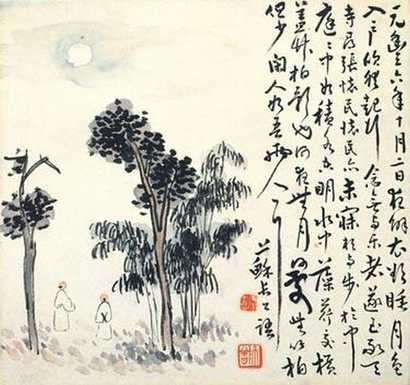 元豐六年十月十二日夜解衣欲睡月色
入戶欣然起行念無與樂者遂至承天
寺尋張懷民懷民亦未寢相與步於中
庭庭中如積水空明水中藻荇交橫
蓋竹柏影也何夜無月何處無竹柏
但少閑人如吾兩人耳
蘇長公語